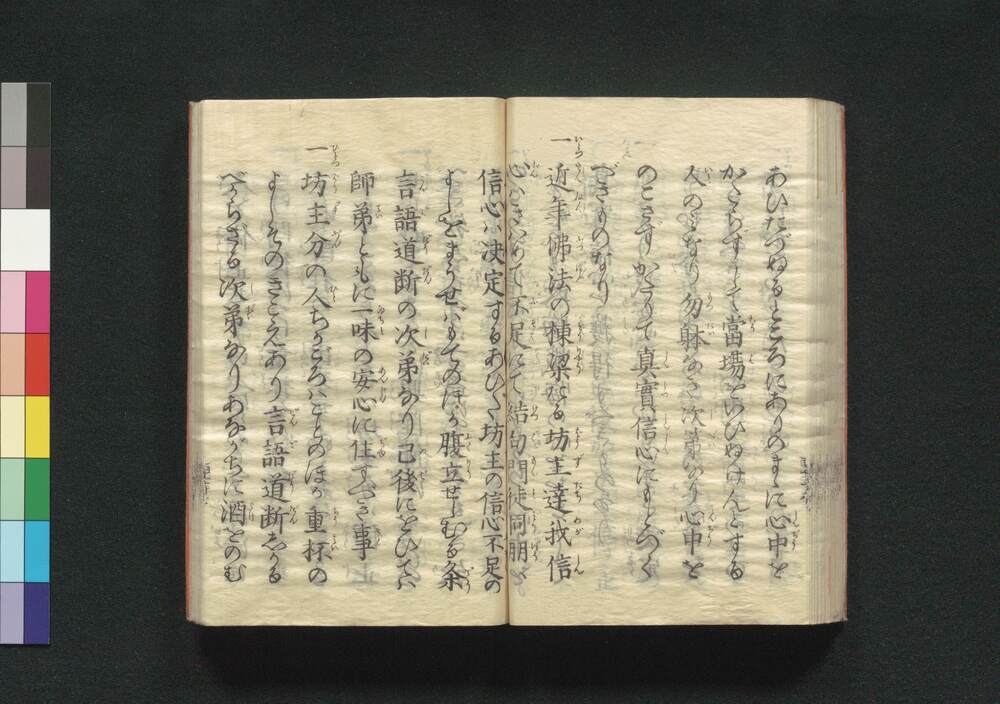 あひたづぬるところにありのまゝに心中を
かたらずして當塲をいひぬけんとする
人のみなり勿躰なき次第なり心中を
のこさずかたりて真實信心にもとづく
べきものなり
一近年佛法の棟梁たる坊主達我信
心はきはめて不足にて結句門徒同朋は
信心は决定するあひだ坊主の信心不足の
よしをまうせばもてのほか腹立せしむる条
言語道断の次第なり已後にをひては
師弟ともに一味の安心に住すべき事
一坊主分の人ちかごろはことのほか重杯の
よしそのきこえあり言語道断しかる
べからざる次第なりあながちに酒をのむ